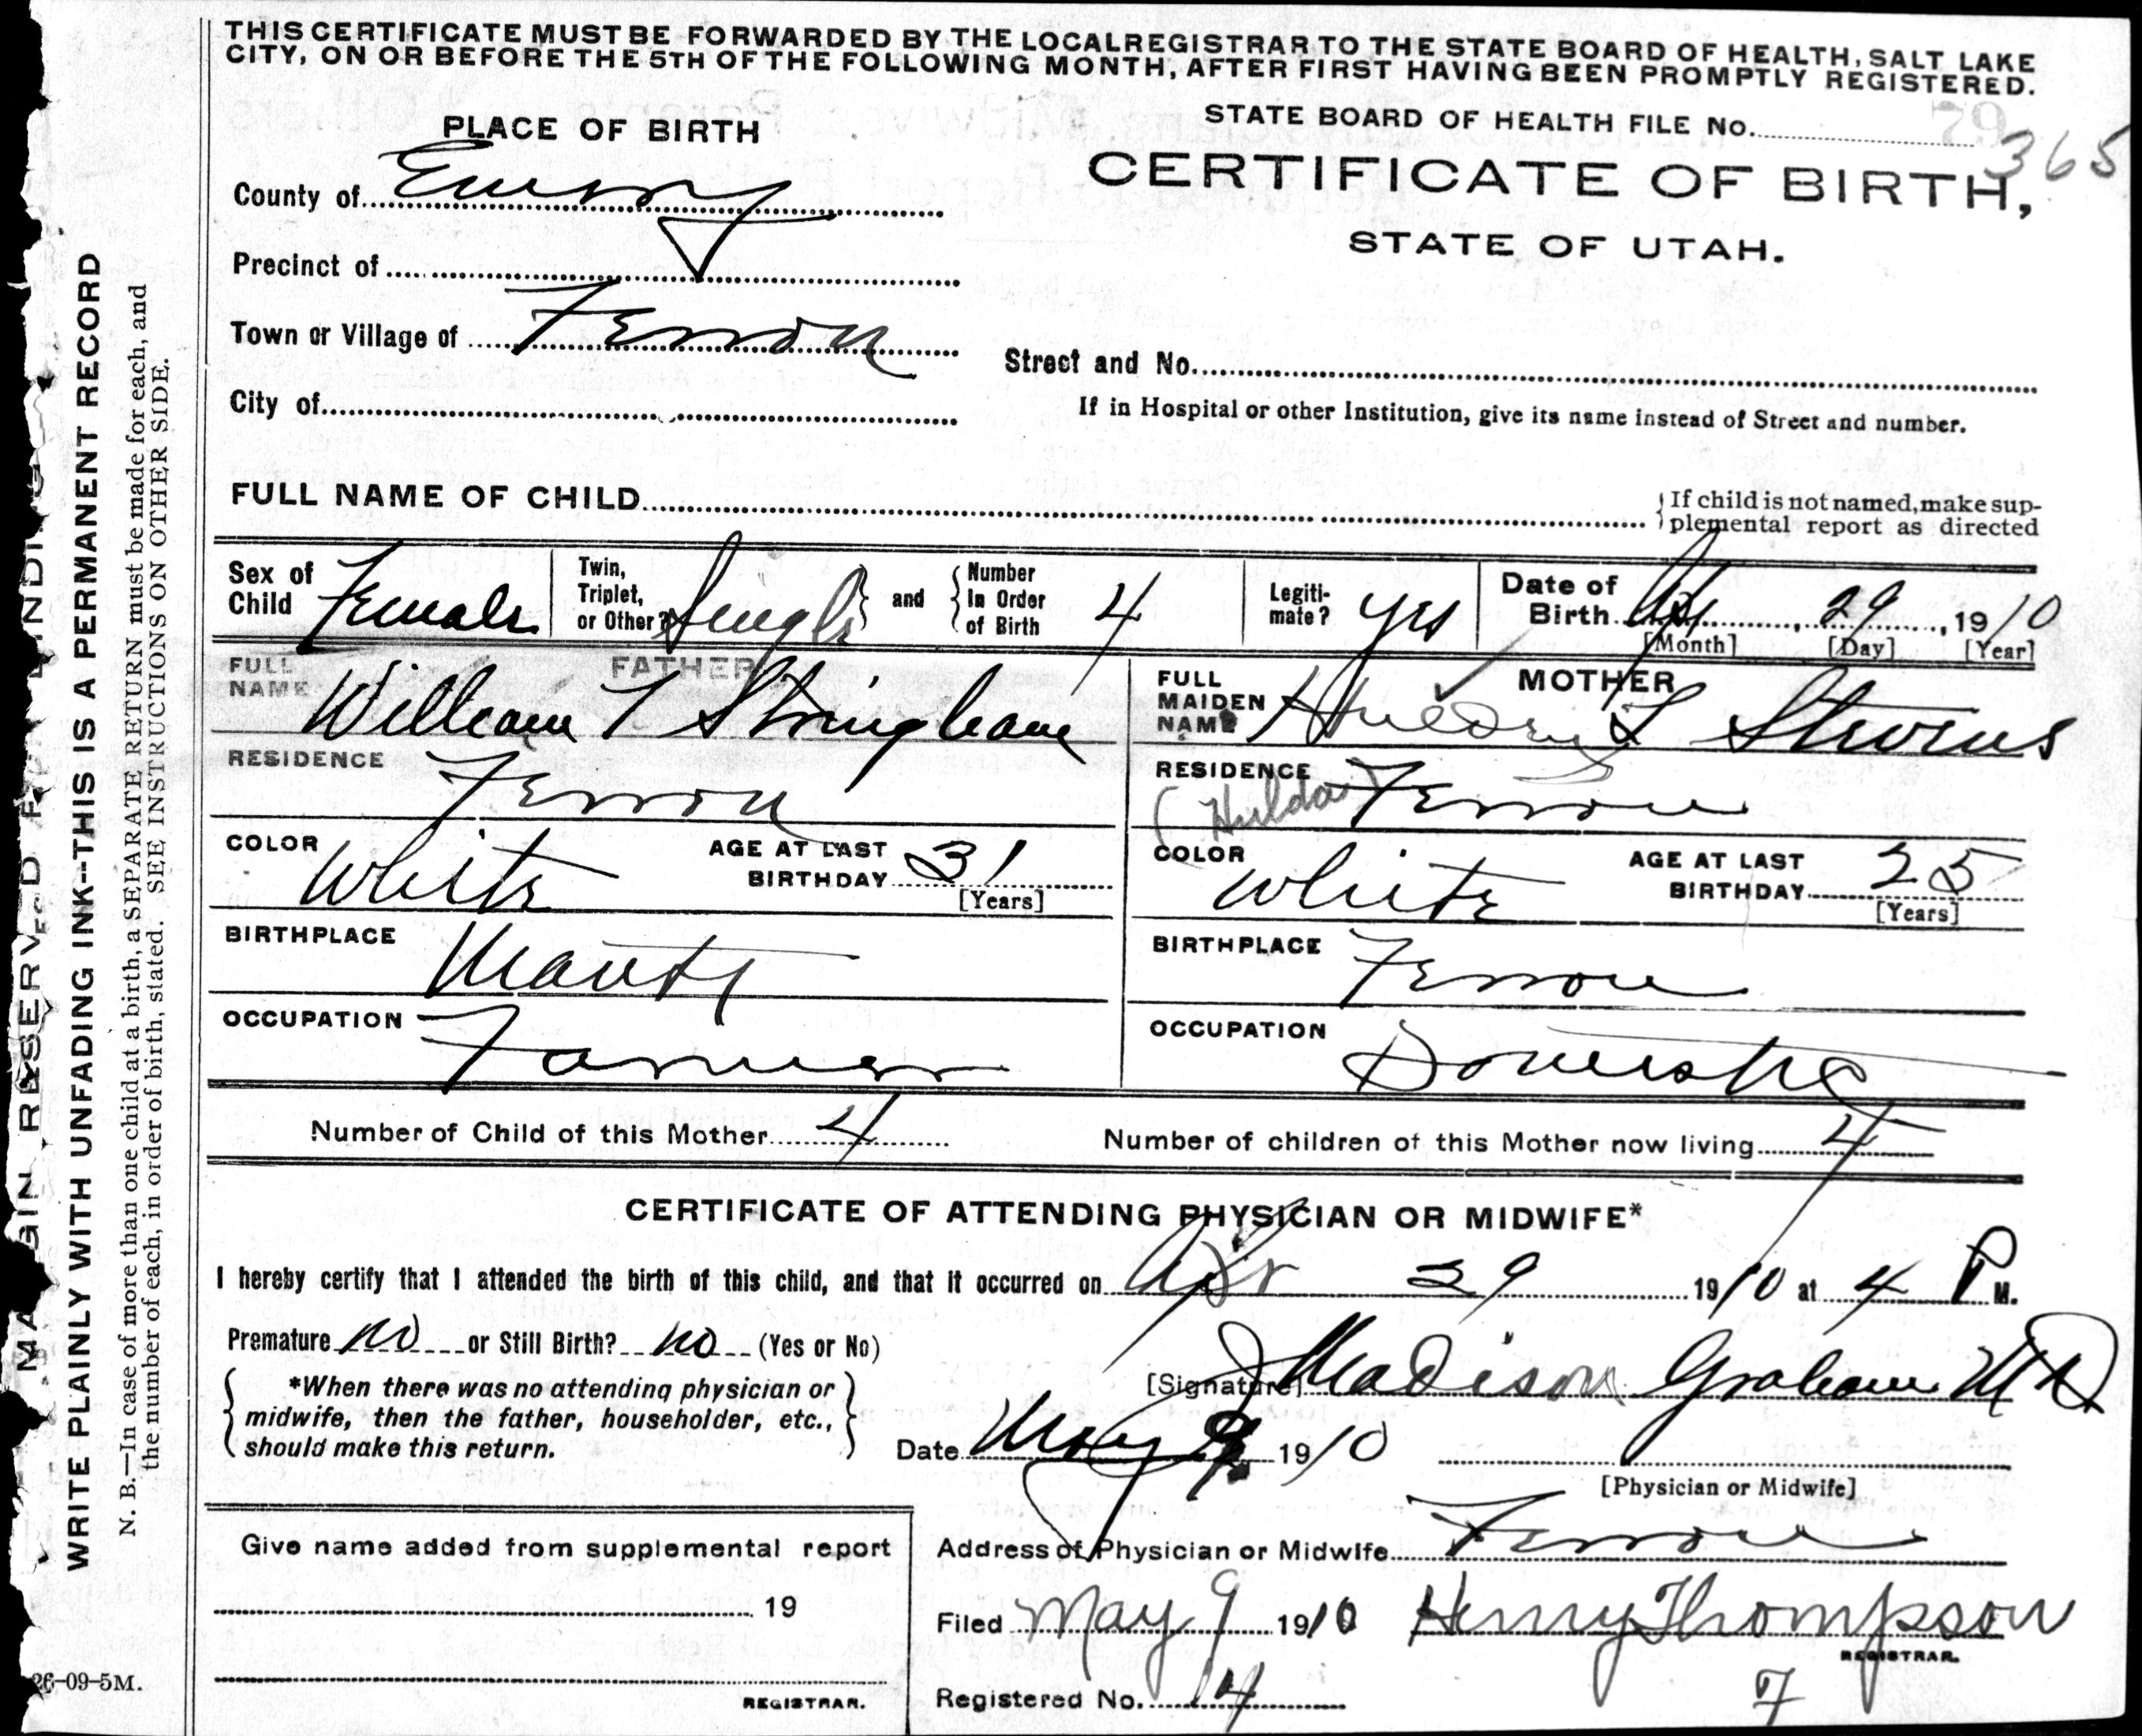 THIS CERTIFICATE MUST BE FORWARDED BY THE LOCAL REGISTRAR TO THE STATE BOARD OF HEALTH, SALT LAKE
CITY, ON OR BEFORE THE 5TH OF THE FOLLOWING MONTH, AFTER FIRST HAVING BEEN PROMPTLY REGISTERED.
PLACE OF BIRTH
STATE BOARD OF HEALTH FILE No. 365
County of Emery
CERTIFICATE OF BIRTH,
STATE OF UTAH.
Precinct of
Town or Village of Ferron
Street and No.
City of
If in Hospital or other Institution, give its name instead of Street and number.
FULL NAME OF CHILD
If child is not named, make sup-
plemental report as directed
Sex of Child Female
Twin, Triplet, or Other? Single and Number In Order of Birth 4
Legiti-mate? yes
Date of Birth Apr, 29, 1910
[Month] [Day] [Year]
FATHER
FULL NAME William T Stringham
MOTHER
FULL MAIDEN NAME L Stevens
RESIDENCE Ferron
RESIDENCE Ferron
(Hulda)
COLOR White
AGE AT LAST BIRTHDAY 31 [Years]
COLOR White
AGE AT LAST BIRTHDAY 25 [Years]
BIRTHPLACE Manti
BIRTHPLACE Ferron
OCCUPATION Farmer
OCCUPATION Domestic
Number of Child of this Mother 4
Number of children of this Mother now living 4
CERTIFICATE OF ATTENDING PHYSICIAN OR MIDWIFE*
I hereby certify that I attended the birth of this child, and that it occurred on Apr 29 1910 at 4 P M.
Premature no or Still Birth? no (Yes or No)
*When there was no attending physician or
midwife, then the father, householder, etc.,
should make this return.
[Signature] J Madison Graham MD
Date May 9 1910
[Physician or Midwife]
Give name added from supplemental report
19
REGISTRAR.
Address of Physician or Midwife Ferron
Filed May 9 1910 Henry Thompson
REGISTRAR.
Registered No. 14
7
MARGIN RESERVED FOR BINDING
WRITE PLAINLY WITH UNFADING INK--THIS IS A PERMANENT RECORD
N. B.—In case of more than one child at a birth, a SEPARATE RETURN must be made for each, and
the number of each, in order of birth, stated. SEE INSTRUCTIONS ON OTHER SIDE.
26-09-5M.